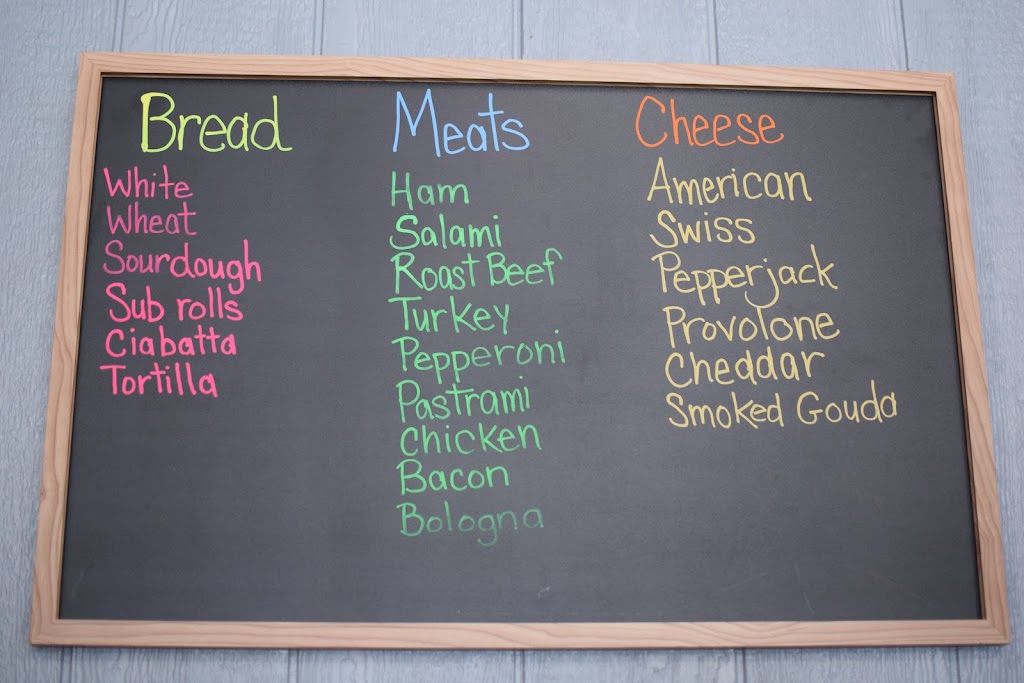 Bread
White
Wheat
Sourdough
Sub rolls
Ciabatta
Tortilla
Meats
Ham
Salami
Roast Beef
Turkey
Pepperoni
Pastrami
Chicken
Bacon
Bologna
Cheese
American
Swiss
Pepperjack
Provolone
Cheddar
Smoked Gouda